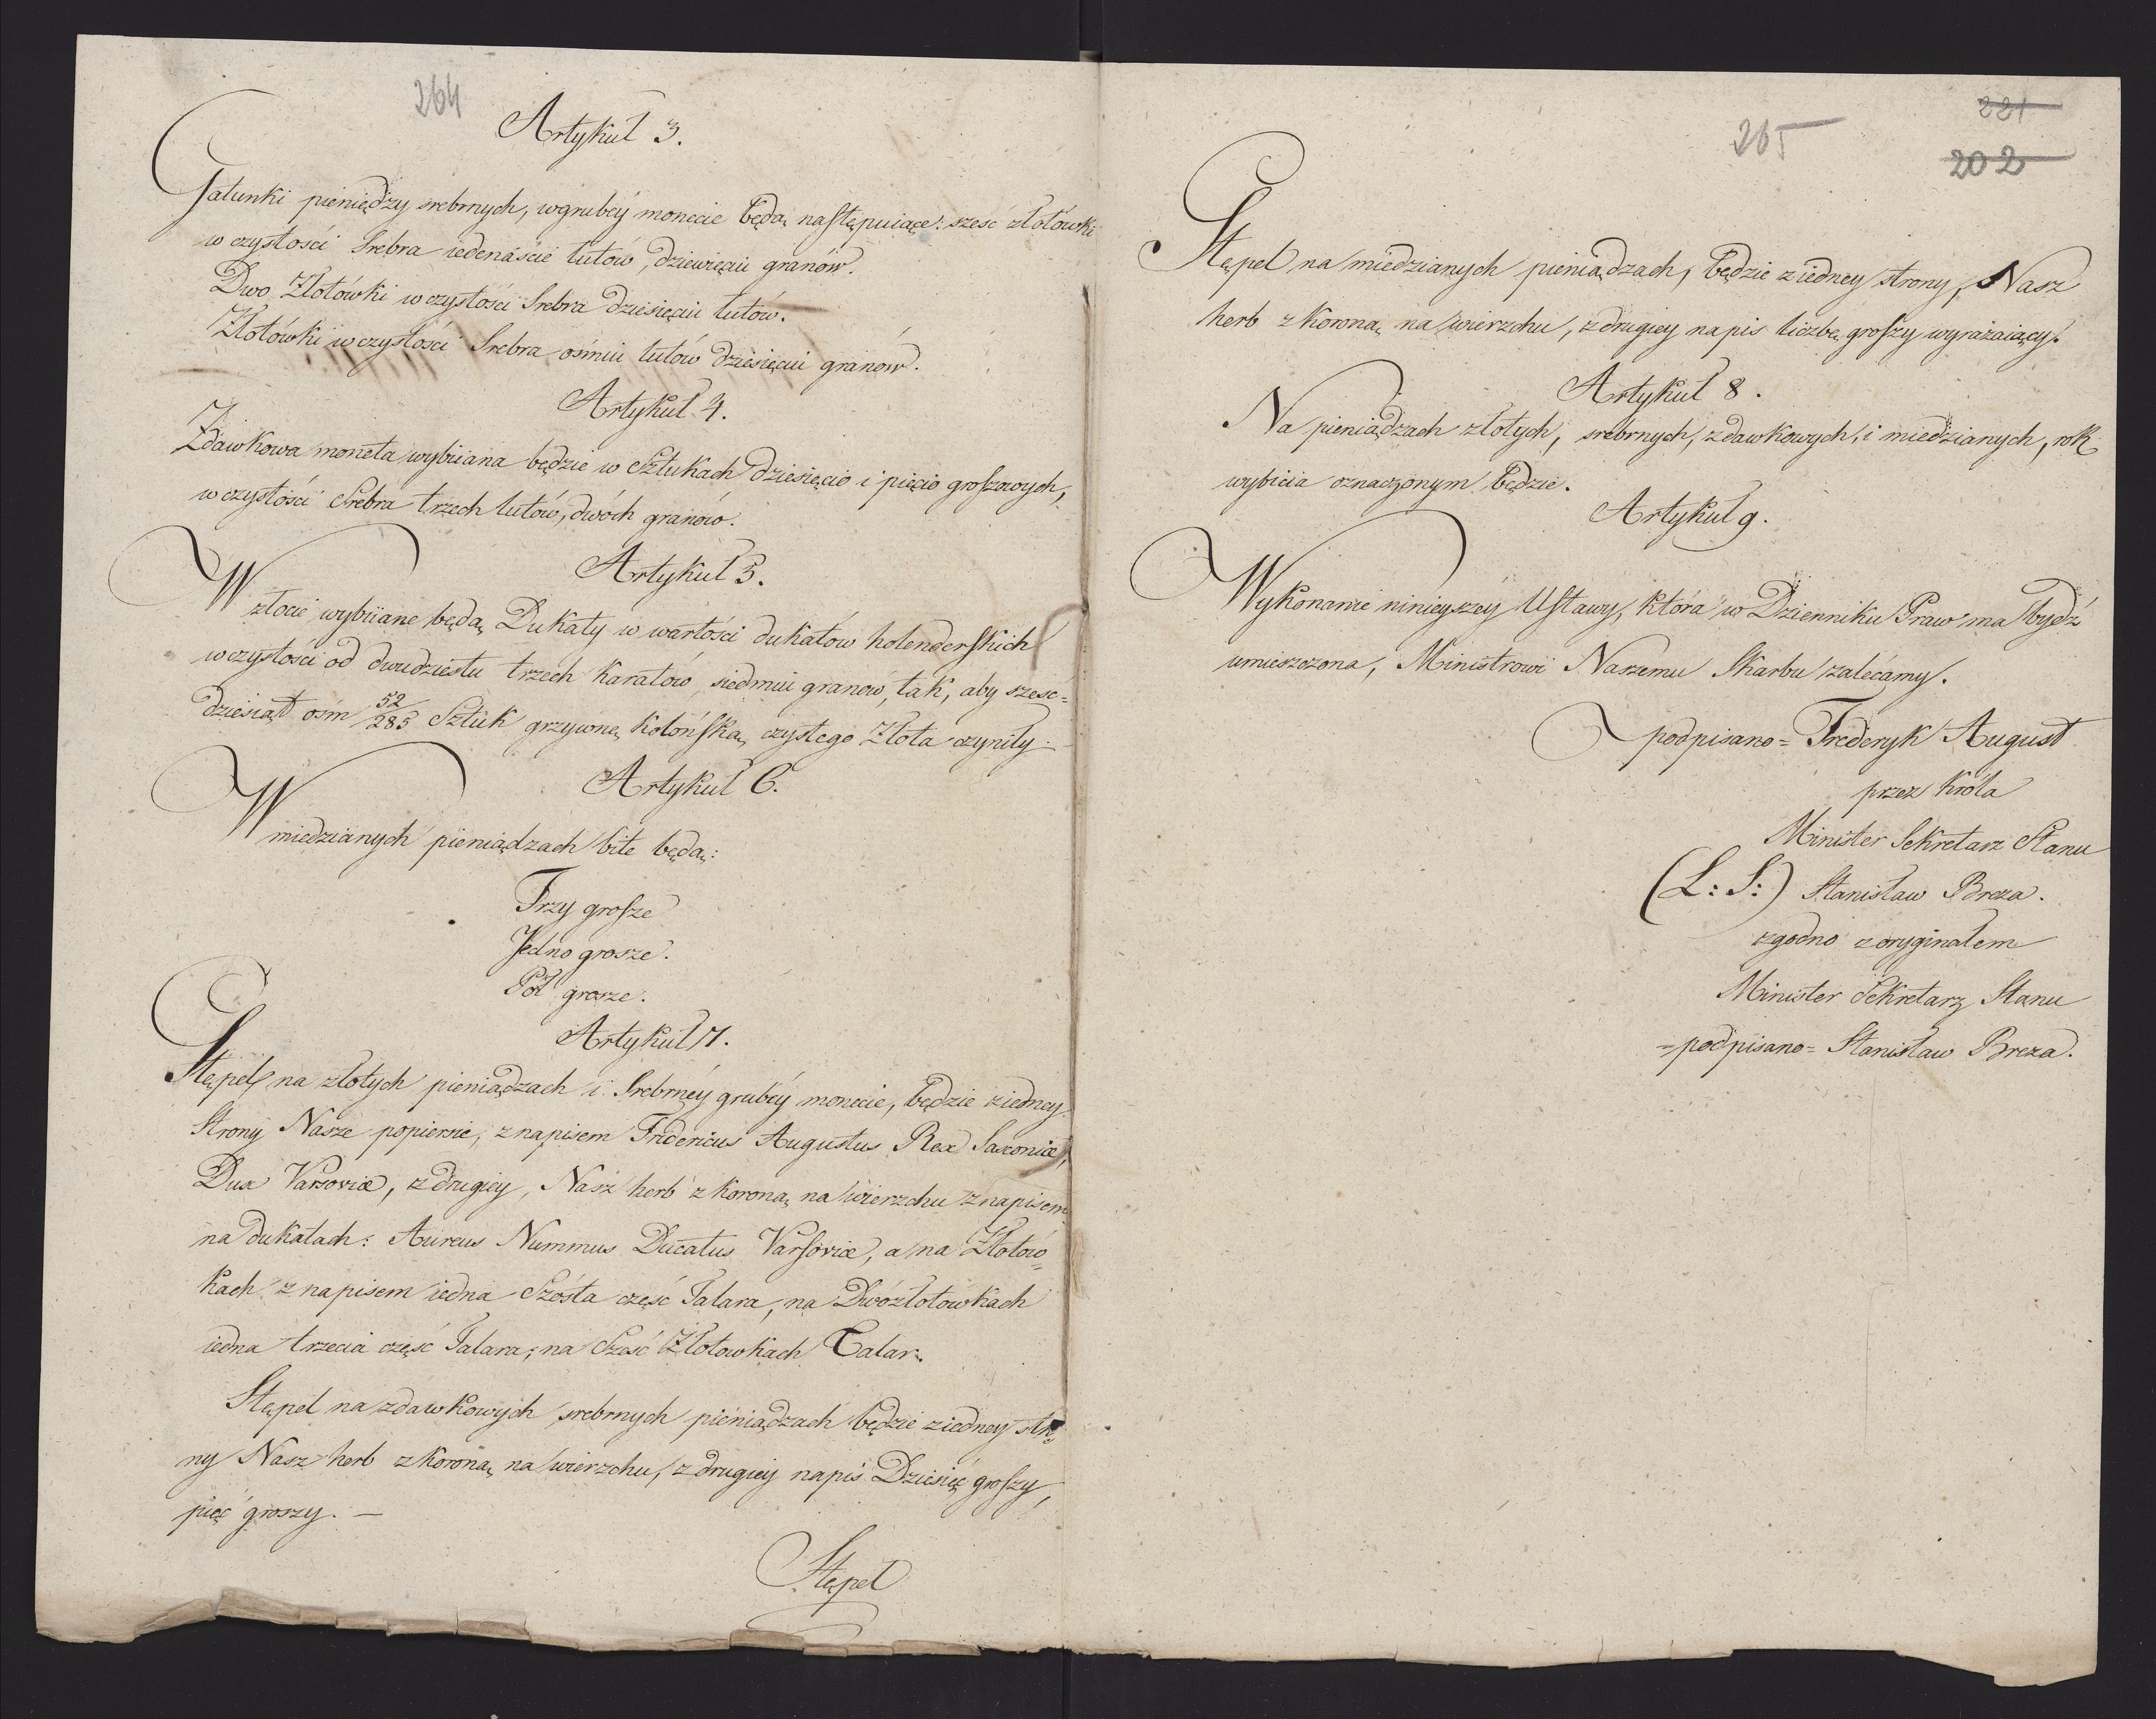 264
Artykuł 3.
Gatunki pieniędzy srebrnych, w grubéy monecie będą następuiące: sześć złotówki
w czystości Srebra iedenáście łutów, dziewięciu granów.
Dwo Złotówki w czystości Srebra dziesięciu łutów.
Złotówki w czystości Srebra ośmiu łutów dziesięciu granów.
Artykuł 4.
Zdawkowa moneta wybiiana będzie w Sztukach dziesięcio i pięcio groszowych,
w czystości Srebra trzech łutów, dwóch granów.
Artykuł 5.
W złocie wybiiane będą Dukaty w wartości dukatow holenderskich
w czystości od dwudziestu trzech karatów, siedmiu granow, tak, aby sześć=
dziesiąt ośm 52/285 Sztuk grzywnę kolońską czystego Złota czyniły.
Artykuł 6.
W miedzianych pieniądzach bite będą:
Trzy grosze
Jedno grosze.
Pół grosze.
Artykuł 7.
Stępel na złotych pieniądzach i Srebrnéy grubéy monecie, będzie ziedney
Strony Nasze popiersie, z napisem Fridericus Augustus Rex Saxoniæ,
Dux Varsoviæ, z drugiey, Nasz herb z koroną na wierzchu z napisem
na dukatach: Aureus Nummus Ducatus Varsoviæ, a na Złotów=
kach z napisem iedna Szósta część Talara, na Dwózłotówkach
iedna trzecia część Talara; na Sześć Złotowkach Talar.
Stępel na zdawkowych srebrnych pieniądzach będzie ziedney stro
ny Nasz herb z koroną na wierzchu, z drugiey napis Dziesięć groszy,
pięć groszy. —
Stępel
265
221
202
Stępel na miedzianych pieniądzach, będzie z iedney strony, Nasz
herb z koroną na wierzchu, z drugiey napis liczbę groszy wyrażaiący.
Artykuł 8.
Na pieniądzach złotych, srebrnych, zdawkowych, i miedzianych, rok
wybicia oznaczonym będzie.
Artykuł 9.
Wykonanie ninieyszéy Ustawy, która w Dzienniku Praw ma bydź
umieszczona, Ministrowi Naszemu Skarbu zalecamy.
podpisano= Frederyk August
przez Króla
Minister Sekretarz Stanu
(L: S:) Stanisław Breza.
zgodno z oryginałem
Minister Sekretarz Stanu
=podpisano= Stanisław Breza.